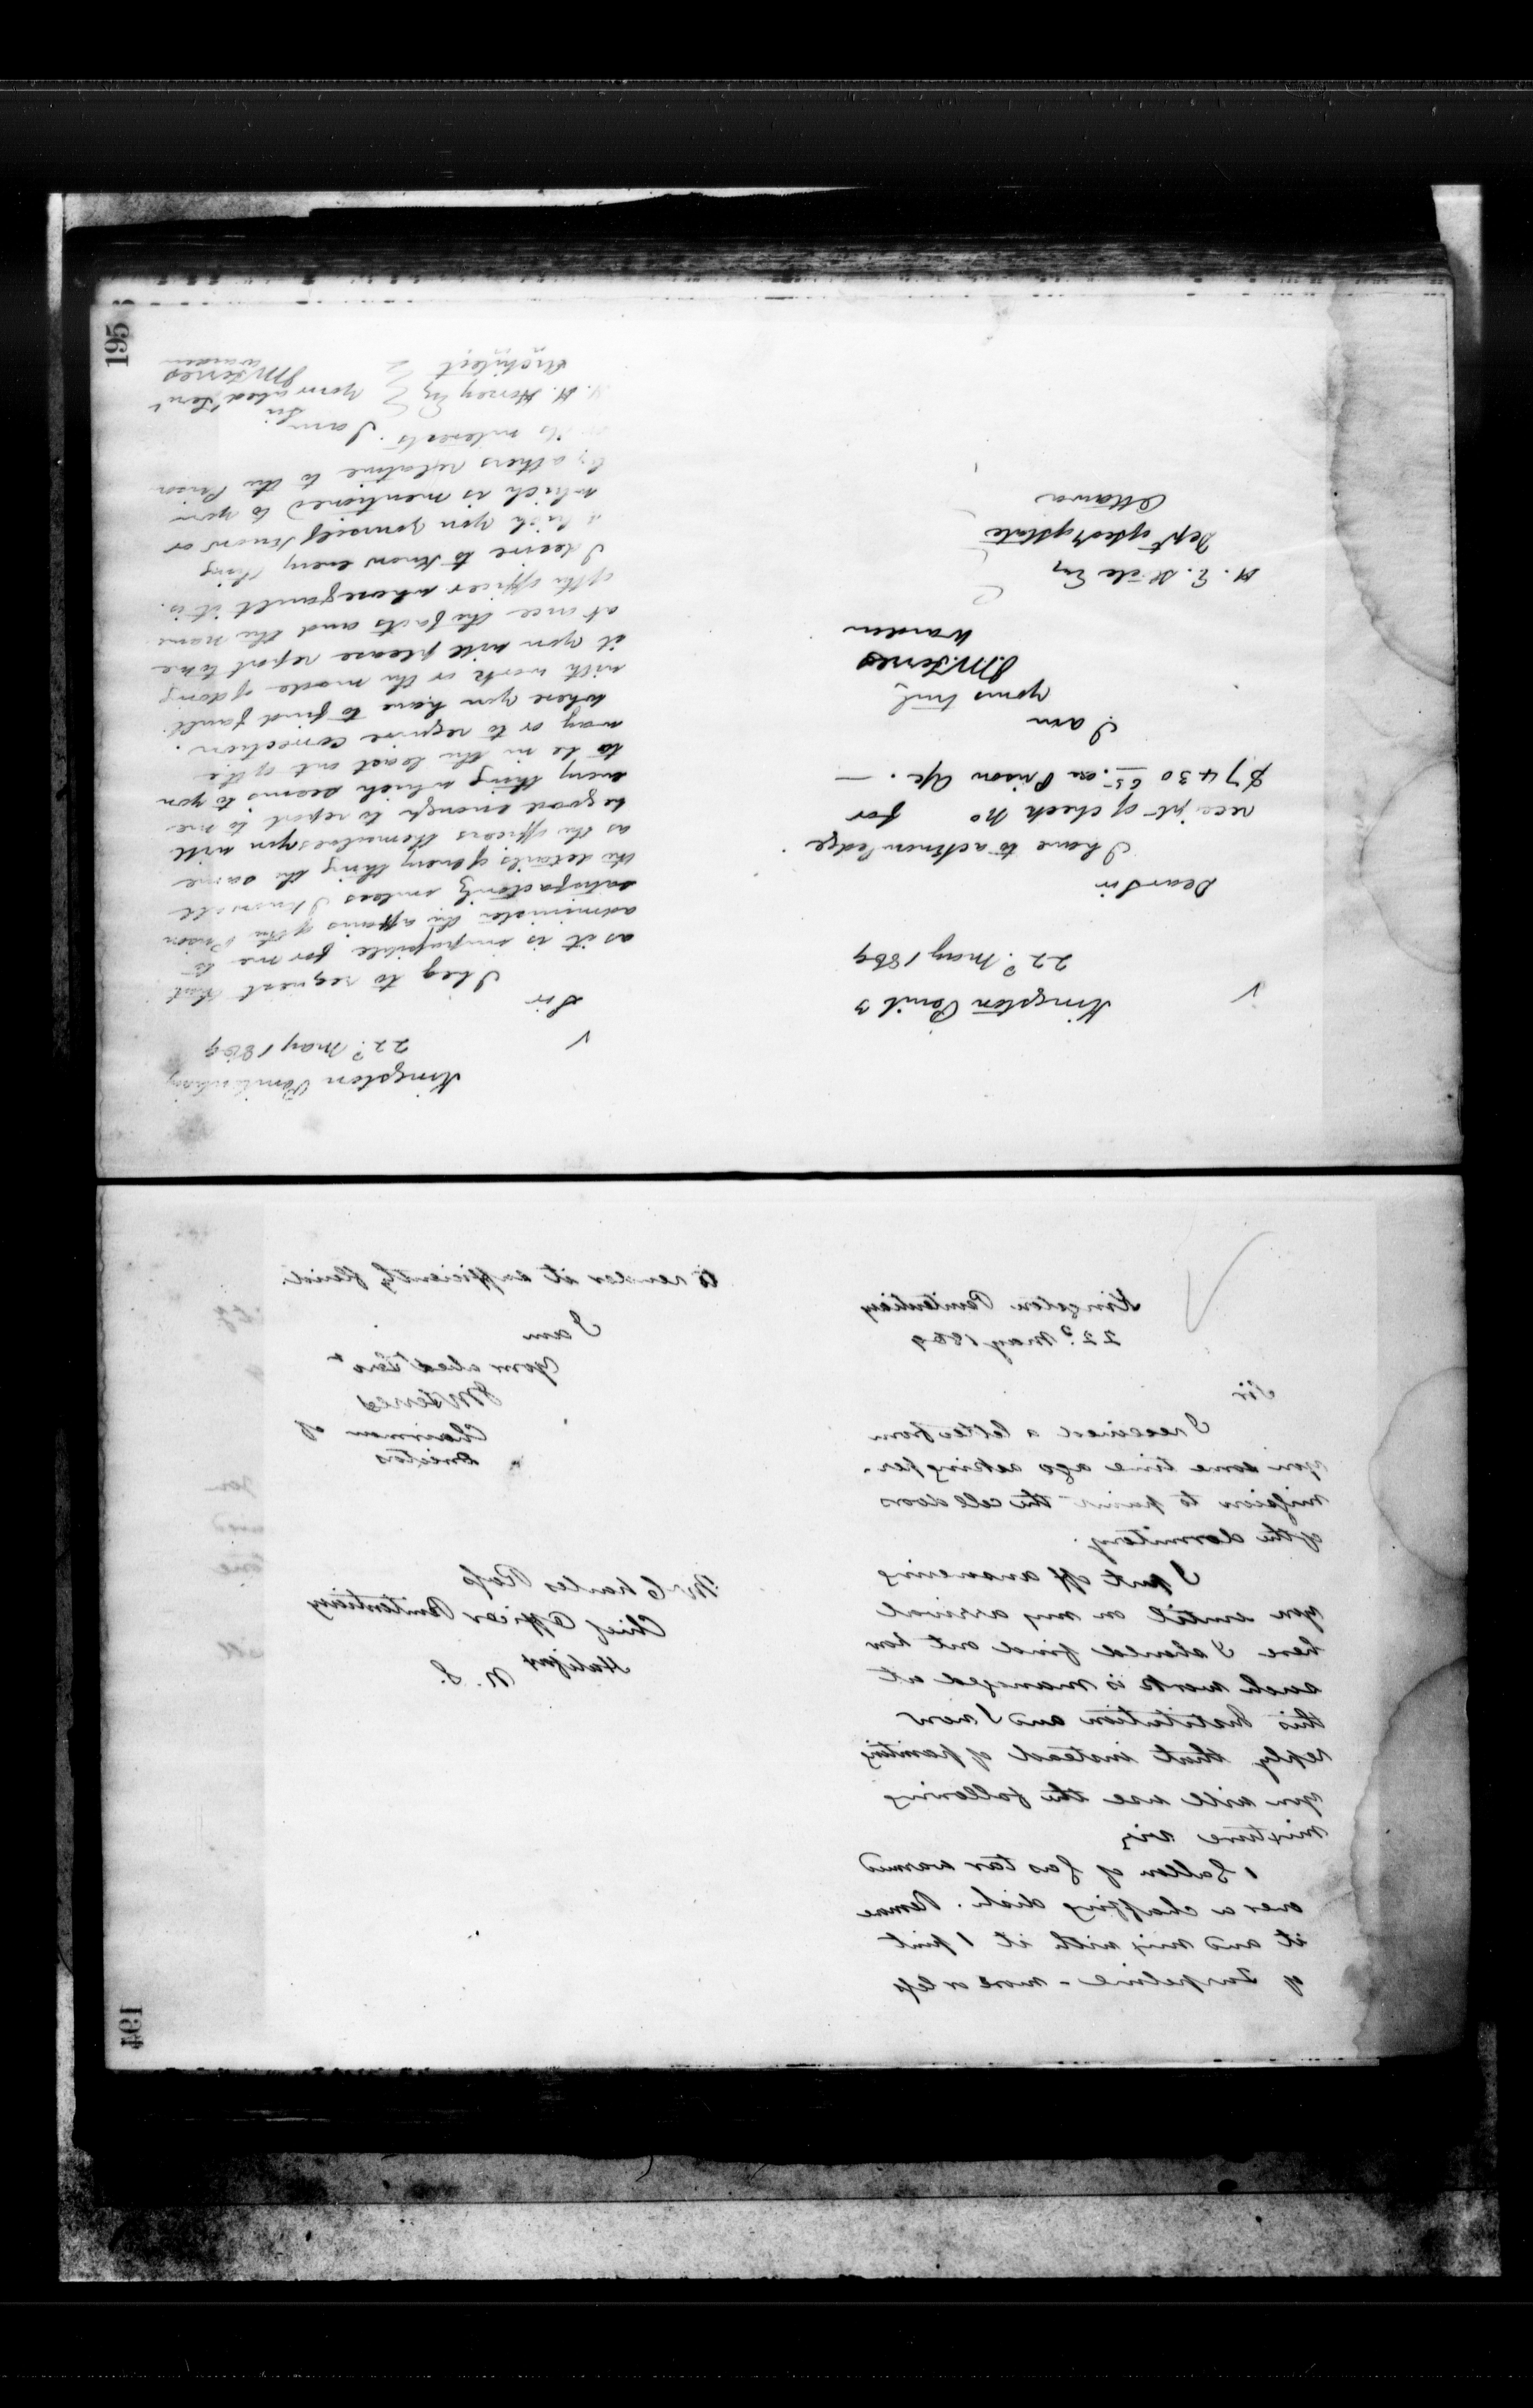 195
Kingston Penit y
22d May 1869
Dear Sir
I have to acknowledge
receipt of check No for
$7430 65 on Prison a/c. —
I am
Yours truly
J M Ferres
Warden
H. E. Steele Esq
Dept of Secry State
Ottawa
Kingston Penitentiary
22d May 1869
Sir
I beg to request that
as it is impossible for me to
administer the affairs of the Prison
satisfactorily unless I know all
the details of every thing the same
as the officers themselves you will
be good enough to report to me
every thing which seems to you
to be in the least out of the
way or to require correction.
Where you have to find fault
with work or the mode of doing
it you will please report to me
at once the facts and the name
of the officer whose fault it is.
I desire to know every thing
which you yourself know or
which is mentioned to you
by others relative to the Prison
or its interests. I am
Sir
Your obed Serv t
J M Ferres
Warden
H. H. Horsey Esq
Architect
194
Kingston Penitentiary
22d May 1869
Sir
I received a letter from
you some time ago asking per-
mission to paint the cell doors
of the dormitory.
I put off answering
you until on my arrival
here I should find out how
such work is managed at
this Institution and I now
reply that instead of painting
you will use the following
mixture viz
1 Gallon of Gas tar warmed
over a chaffing dish. Remove
it and mix with it 1 pint
of Turpetine - more or less
to render it sufficiently fluid.
I am
Your obed Servt
J M Ferres
Chairman of
Directors
Mr Charles Ross
Chief Officer Penitentiary
Halifax
N. S.